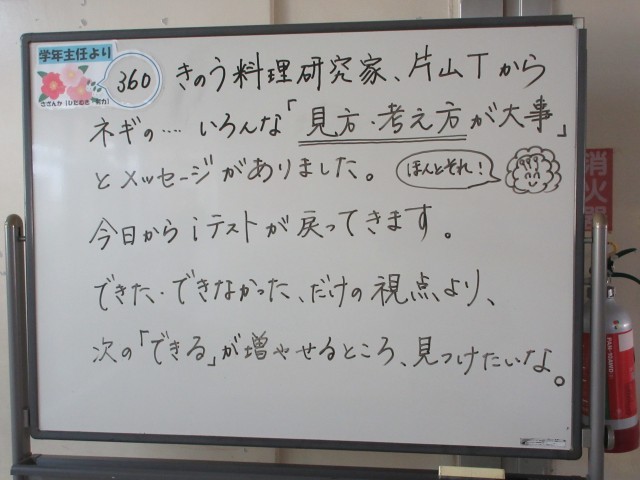 学年主任より
さざんか(ひたむき 魅力)
360 きのう料理研究家、片山Tから
ネギの… いろんな「見方・考え方が大事」
とメッセージがありました。
ほんとそれ!
今日からiテストが戻ってきます。
できた・できなかった、だけの視点より、
次の「できる」が増やせるところ、見つけたいな。
消火器